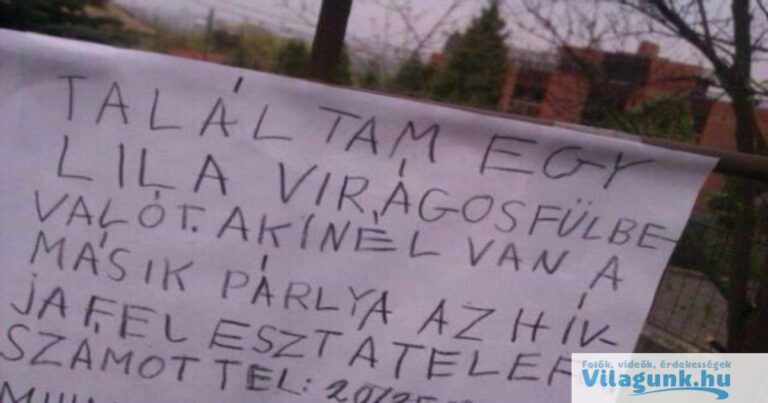 TALÁLTAM EGY
LILA VIRÁGOSFÜLBE-
VALÓT. AKINÉL VAN A
MÁSIK PÁRLYA AZ HÍV-
JA FEL ESZT A TELEF
SZÁMOT TEL: 20/25
Fotók, videók, érdekességek
Vilagunk.hu